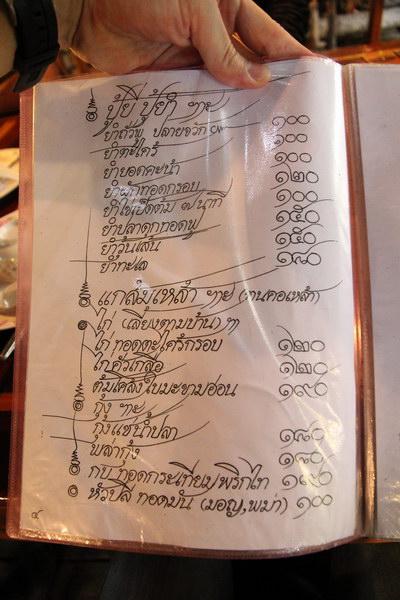 ยำถั่วพู ปลายจวัก ๑๐๐
ยำตะไคร้ ๑๐๐
ยำยอดคะน้า ๑๐๐
ยำผักทอดกรอบ ๑๒๐
ยำไข่เป็ดต้ม ๗ นาที ๑๐๐
ยำปลาดุกทอดฟู ๑๕๐
ยำวุ้นเส้น ๑๕๐
ยำทะเล ๑๘๐
แกล้มเหล้า ฯาฯ (คนคอเหล้า)
ไก่ (เลี้ยงตามบ้าน)
ไก่ ทอดตะไคร้กรอบ ๑๒๐
ไก่ คั่วเกลือ ๑๒๐
ต้มโคล้งใบมะขามอ่อน ๑๙๐
กุ้ง ฯาฯ
กุ้งแช่น้ำปลา ๑๘๐
พล่ากุ้ง ๑๘๐
กบ ทอดกระเทียมพริกไท ๑๘๐
หัวปลี ทอดมัน (มอญ,พม่า) ๑๐๐
๔